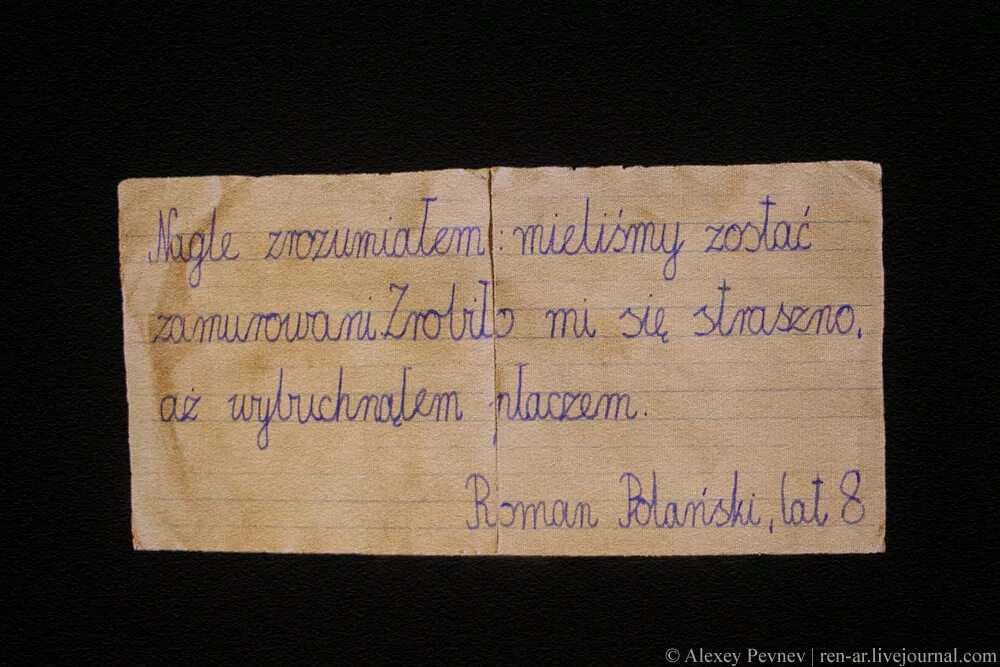 Nagle zrozumiałem: mieliśmy zostać
zamurowani Zrobiło mi się straszno,
aż wybuchnąłem płaczem.
Roman Polański, lat 8
© Alexey Pevnev | ren-ar.livejournal.com